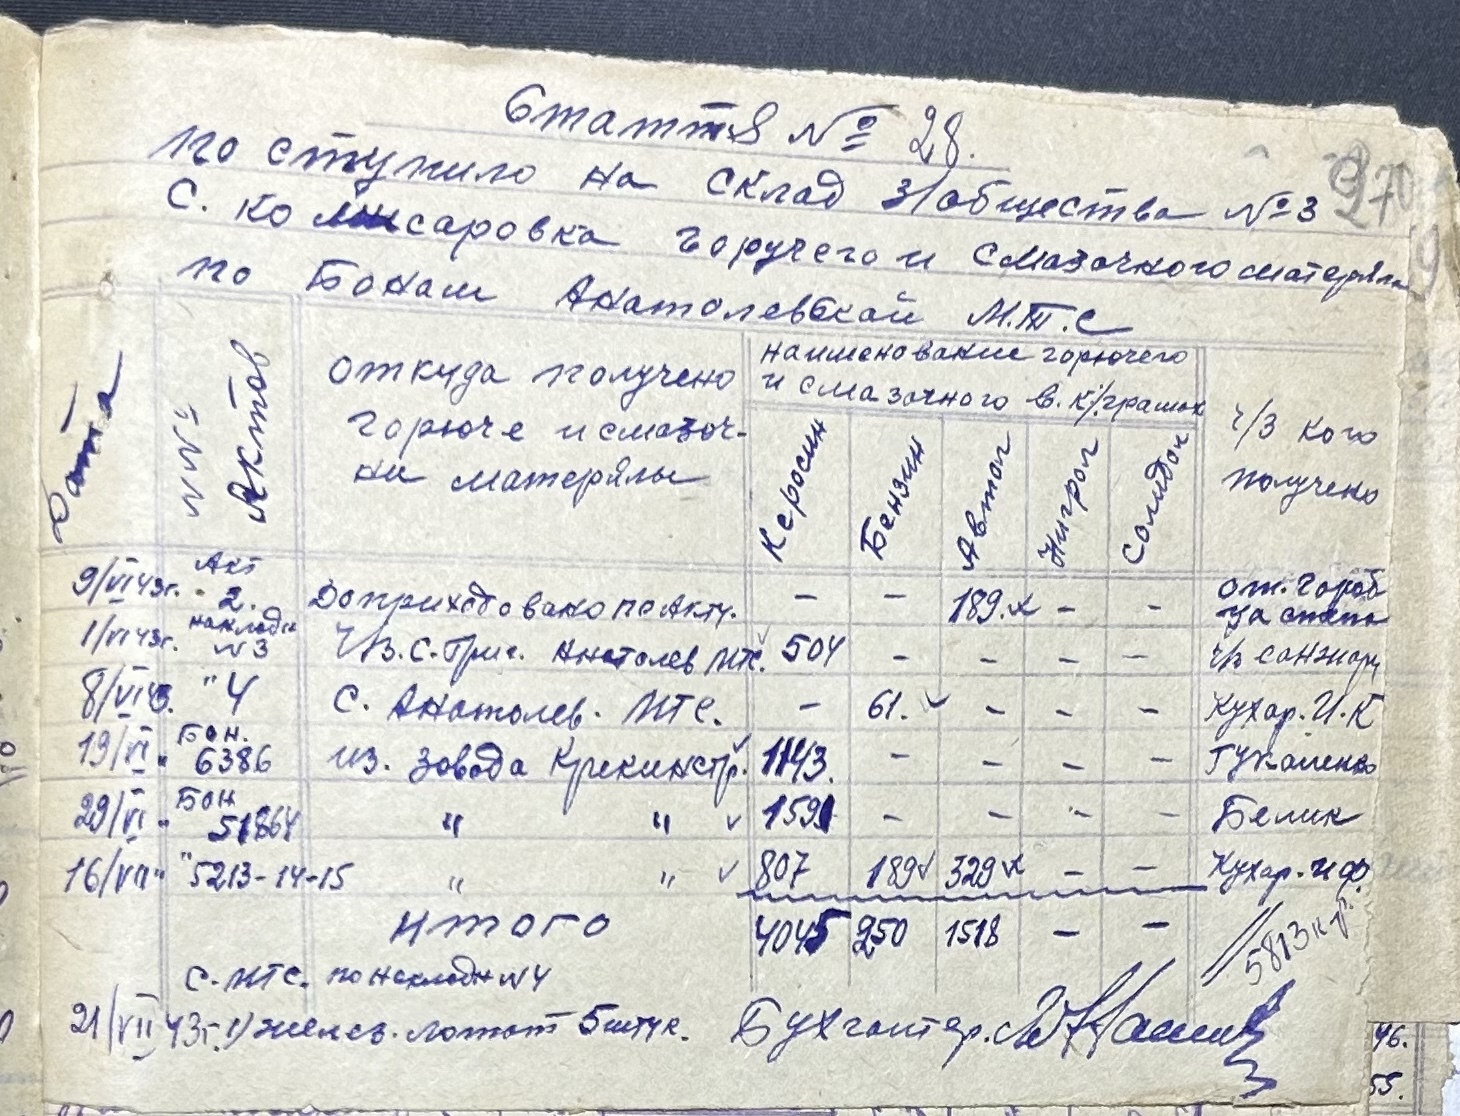 Стаття № 28.
270
поступило на склад з/общества № 3
с. Комисаровка горучего и смазочного материяла
по Бонам Анатолевской М.Т.С
Дата
№№ Актов
откуда получено горюче и смазочни материялы
наименование горючего и смазочного в. к/грамах
Керосин
Бензин
Автол
Нигрол
Солидол
ч/з кого получено
9/VI 43г. Акт 2. Доприходовано по Акту. - - 189. - - от. Гороб за степ
1/VI 43г. накладн №3 ч/з. С. Григ. Анатолев МТС. 504 - - - - ч/з Санжару
8/VI 43. " 4 С. Анатолев. МТС. - 61. - - - Кухар. И. К
19/VI " Бон. 6386 из. завода Крекинстр. 1143. - - - -
29/VI " Бон 51864 " " 1591 - - - - Белик
16/VII " " 5213-14-15 " " 807 189 329 - - Кухар. и ф.
итого 4045 250 1518 - - 5813 к.г.
С. МТС. по накладн №4
21/VII 43г. 1) желез. лопат 5 штук. Бухгалтер.
46.
55.